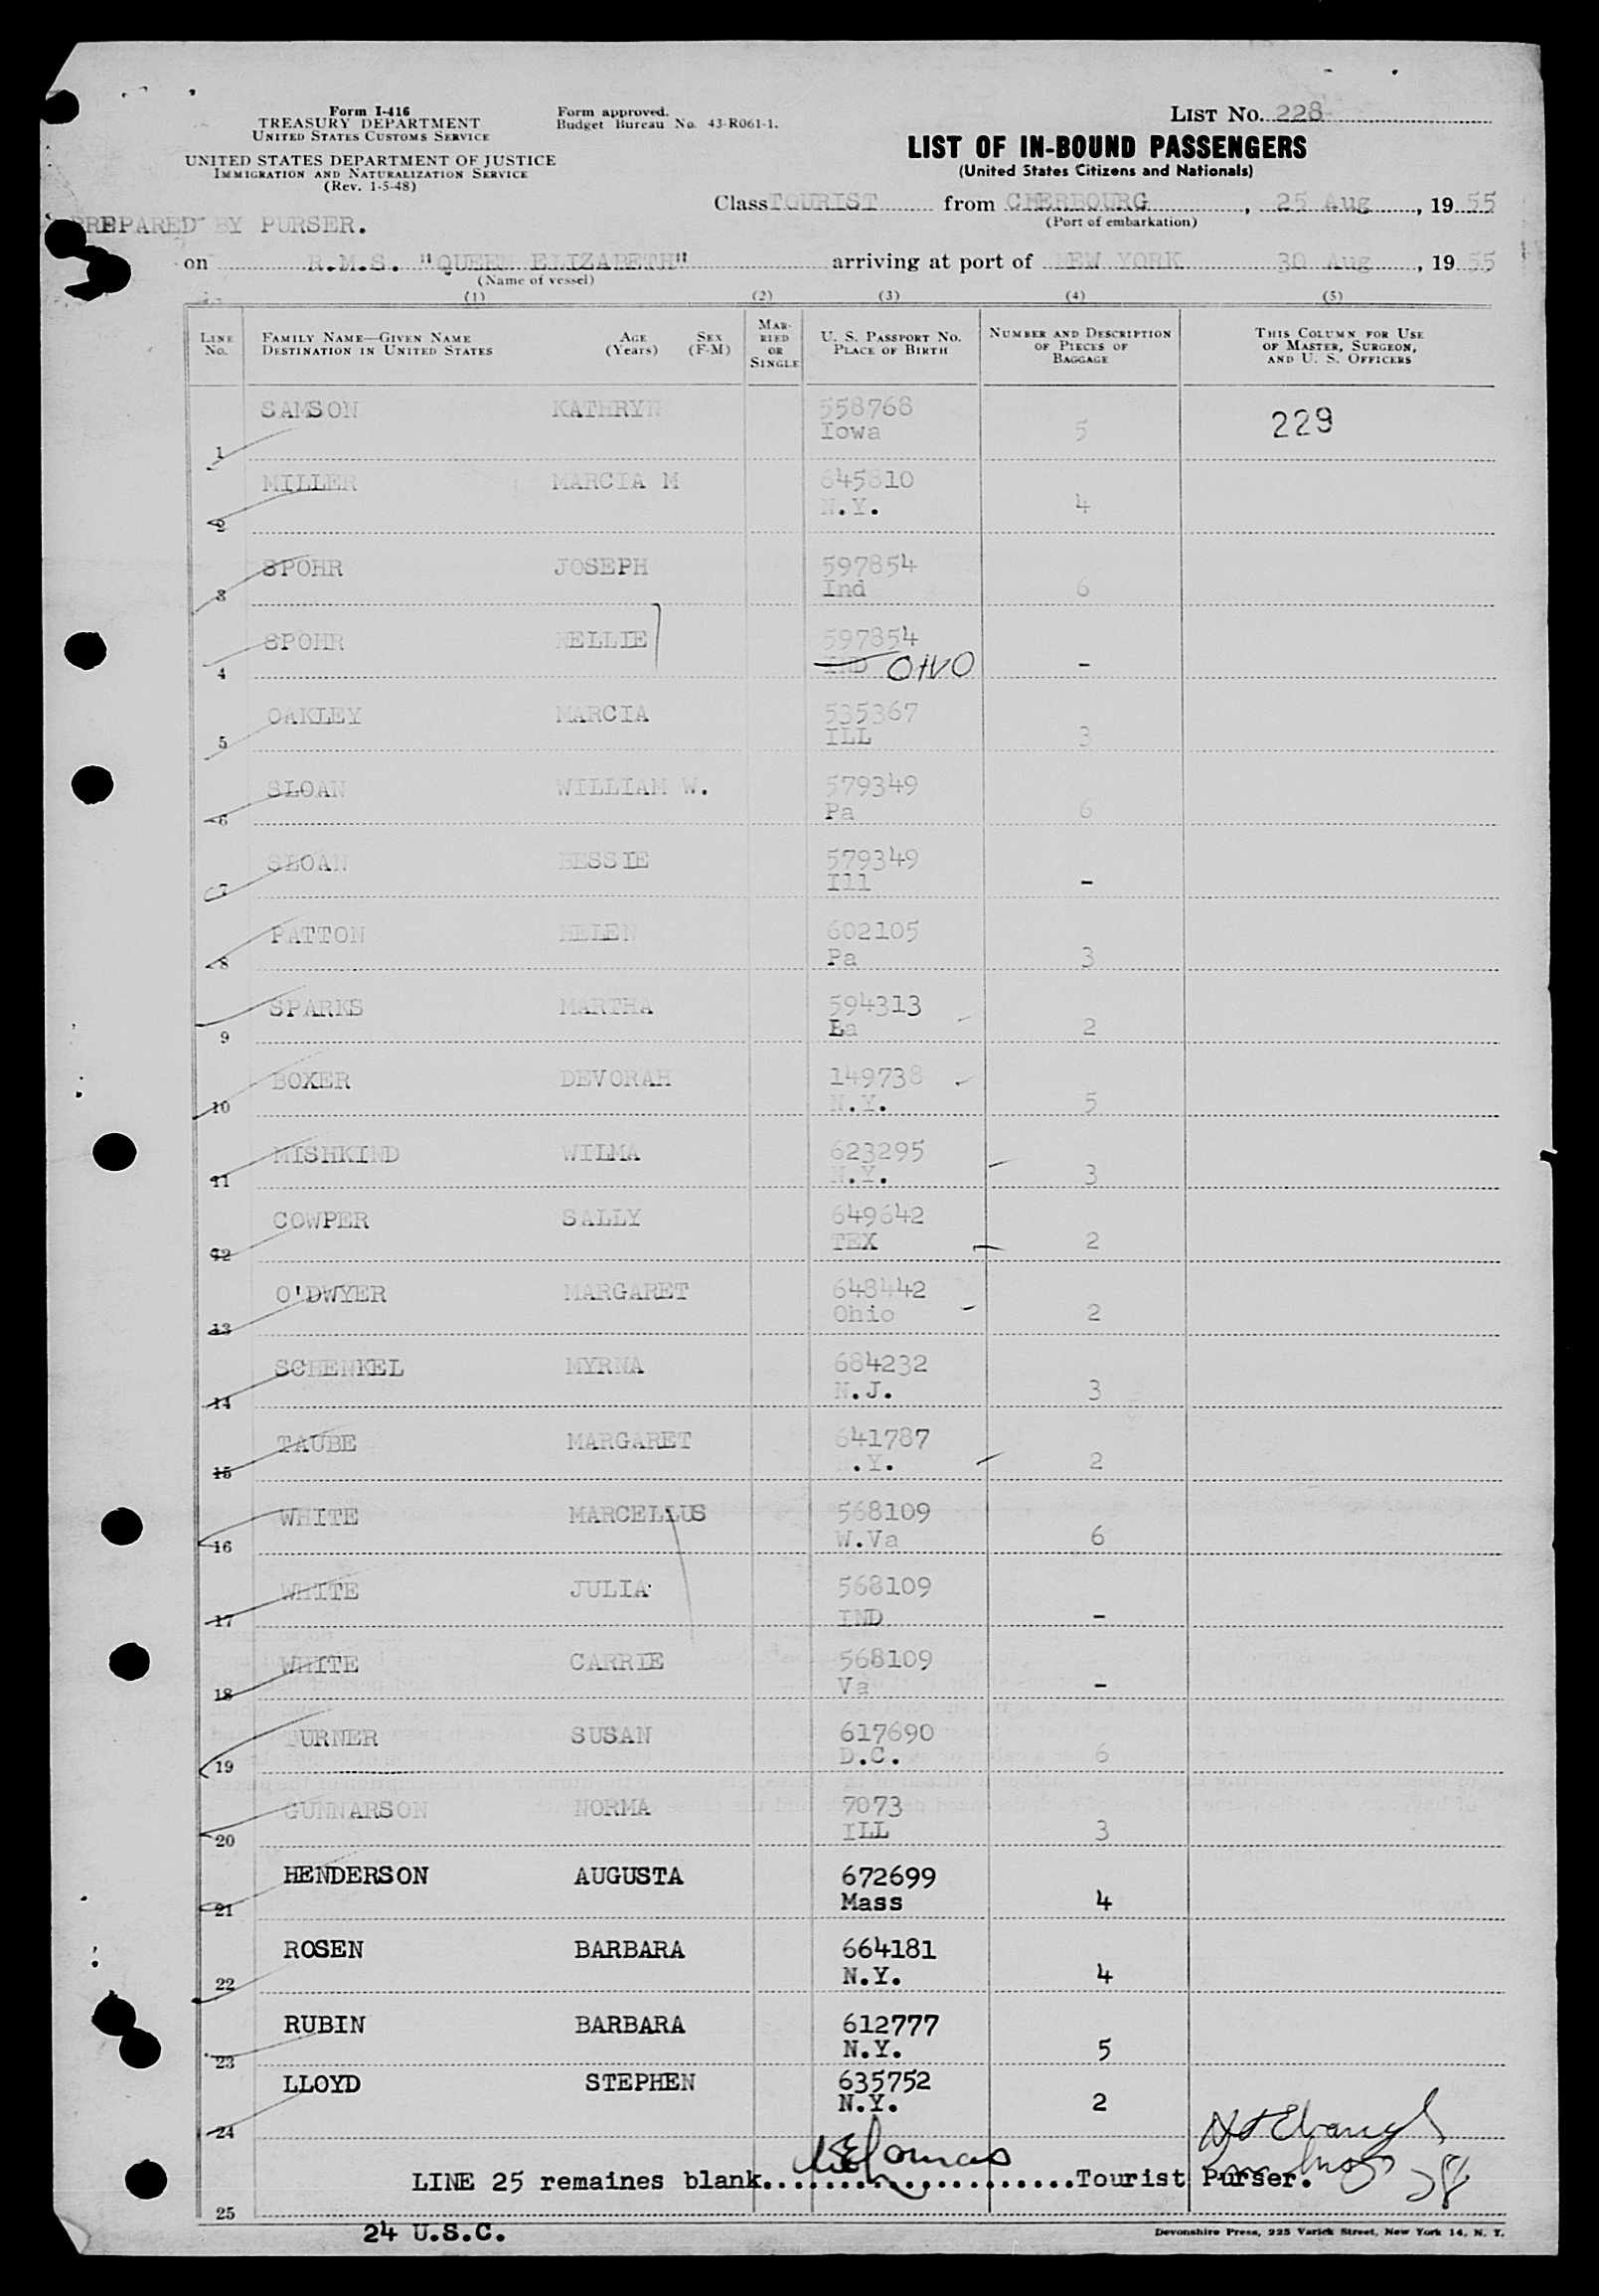 Form I-416
TREASURY DEPARTMENT
UNITED STATES CUSTOMS SERVICE
UNITED STATES DEPARTMENT OF JUSTICE
IMMIGRATION AND NATURALIZATION SERVICE
(Rev. 1-5-48)
Form approved.
Budget Bureau No. 43-R061-1.
LIST NO. 228
LIST OF IN-BOUND PASSENGERS
(United States Citizens and Nationals)
Class TOURIST from CHERBOURG, 25 Aug, 1955
(Port of embarkation)
PREPARED BY PURSER.
on R.M.S. "QUEEN ELIZABETH" arriving at port of NEW YORK 30 Aug, 1955
(Name of vessel)
(1) (2) (3) (4) (5)
LINE NO. FAMILY NAME—GIVEN NAME DESTINATION IN UNITED STATES AGE (Years) SEX (F-M) MARRIED OR SINGLE U. S. PASSPORT NO. PLACE OF BIRTH NUMBER AND DESCRIPTION OF PIECES OF BAGGAGE THIS COLUMN FOR USE OF MASTER, SURGEON, AND U. S. OFFICERS
SAMSON KATHRYN 558768 229
1 Iowa 5
MILLER MARCIA M 645810
2 N.Y. 4
SPOHR JOSEPH 597854
3 Ind 6
SPOHR NELLIE 597854
4 IND OHIO -
OAKLEY MARCIA 535367
5 ILL 3
SLOAN WILLIAM W. 579349
6 Pa 6
SLOAN BESSIE 579349
7 Ill -
PATTON HELEN 602105
8 Pa 3
SPARKS MARTHA 594313
9 2
BOXER DEVORAH 149738
10 N.Y. 5
MISHKIND WILMA 623295
11 N.Y. 3
COWPER SALLY 649642
12 TEX 2
O'DWYER MARGARET 648442
13 Ohio 2
SCHENKEL MYRNA 684232
14 N.J. 3
TAUBE MARGARET 641787
15 N.Y. 2
WHITE MARCELLUS 568109
16 W.Va 6
WHITE JULIA 568109
17 IND -
WHITE CARRIE 568109
18 Va -
TURNER SUSAN 617690
19 D.C. 6
GUNNARSON NORMA 7073
20 ILL 3
HENDERSON AUGUSTA 672699
21 Mass 4
ROSEN BARBARA 664181
22 N.Y. 4
RUBIN BARBARA 612777
23 N.Y. 5
LLOYD STEPHEN 635752
24 N.Y. 2
LINE 25 remaines blank....................Tourist Purser.
25
24 U.S.C.
Devonshire Press, 225 Varick Street, New York 14, N. Y.